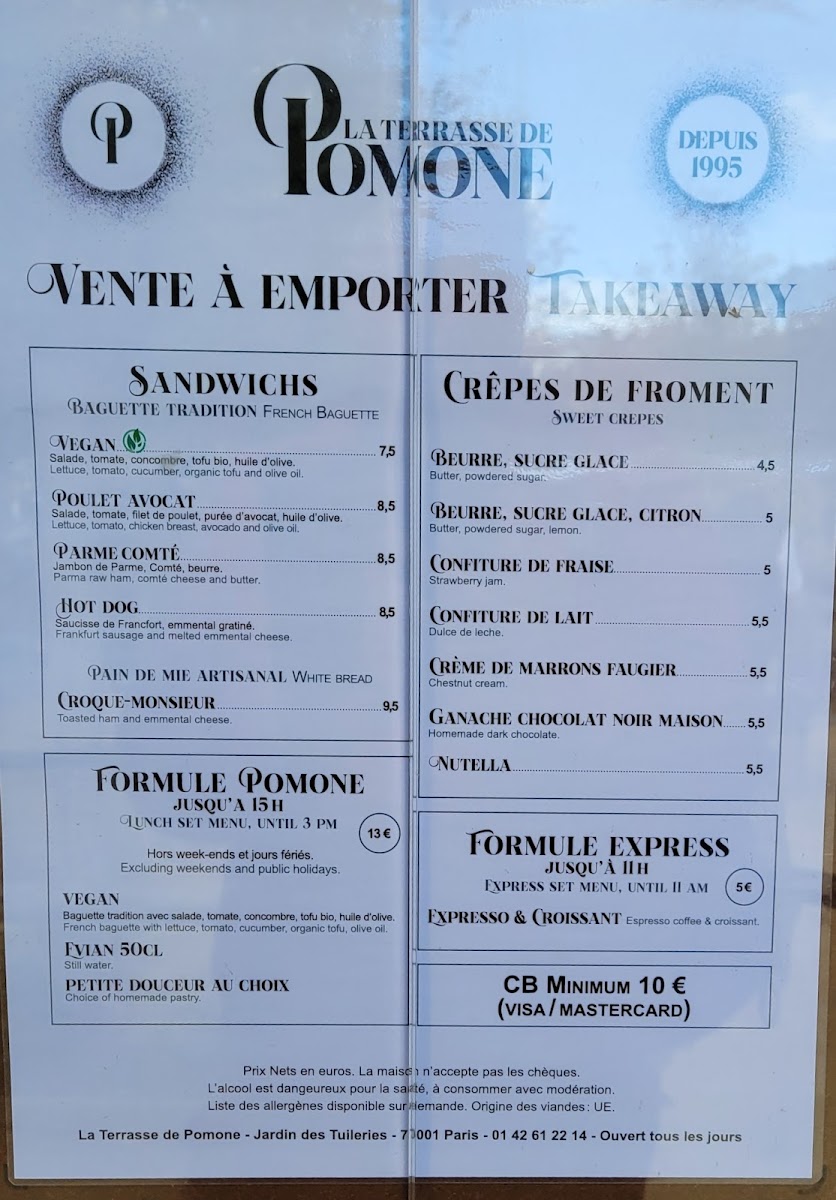 LA TERRASSE DE
POMONE
DEPUIS
1995
VENTE À EMPORTER TAKEAWAY
SANDWICHS
BAGUETTE TRADITION FRENCH BAGUETTE
VEGAN 7,5
Salade, tomate, concombre, tofu bio, huile d'olive.
Lettuce, tomato, cucumber, organic tofu and olive oil.
POULET AVOCAT 8,5
Salade, tomate, filet de poulet, purée d'avocat, huile d'olive.
Lettuce, tomato, chicken breast, avocado and olive oil.
PARME COMTÉ 8,5
Jambon de Parme, Comté, beurre.
Parma raw ham, comté cheese and butter.
HOT DOG 8,5
Saucisse de Francfort, emmental gratiné.
Frankfurt sausage and melted emmental cheese.
PAIN DE MIE ARTISANAL WHITE BREAD
CROQUE-MONSIEUR 9,5
Toasted ham and emmental cheese.
FORMULE POMONE
JUSQU'A 15H
LUNCH SET MENU, UNTIL 3 PM
13 €
Hors week-ends et jours fériés.
Excluding weekends and public holidays.
VEGAN
Baguette tradition avec salade, tomate, concombre, tofu bio, huile d'olive.
French baguette with lettuce, tomato, cucumber, organic tofu, olive oil.
EVIAN 50CL
Still water.
PETITE DOUCEUR AU CHOIX
Choice of homemade pastry.
CRÊPES DE FROMENT
SWEET CREPES
BEURRE, SUCRE GLACE 4,5
Butter, powdered sugar.
BEURRE, SUCRE GLACE, CITRON 5
Butter, powdered sugar, lemon.
CONFITURE DE FRAISE 5
Strawberry jam.
CONFITURE DE LAIT 5,5
Dulce de leche.
CRÈME DE MARRONS FAUGIER 5,5
Chestnut cream.
GANACHE CHOCOLAT NOIR MAISON 5,5
Homemade dark chocolate.
NUTELLA 5,5
FORMULE EXPRESS
JUSQU'À 11H
EXPRESS SET MENU, UNTIL 11 AM
5€
EXPRESSO & CROISSANT Espresso coffee & croissant.
CB MINIMUM 10 €
(VISA/MASTERCARD)
Prix Nets en euros. La maison n'accepte pas les chèques.
L'alcool est dangeureux pour la santé, à consommer avec modération.
Liste des allergènes disponible sur demande. Origine des viandes : UE.
La Terrasse de Pomone - Jardin des Tuileries - 75001 Paris - 01 42 61 22 14 - Ouvert tous les jours